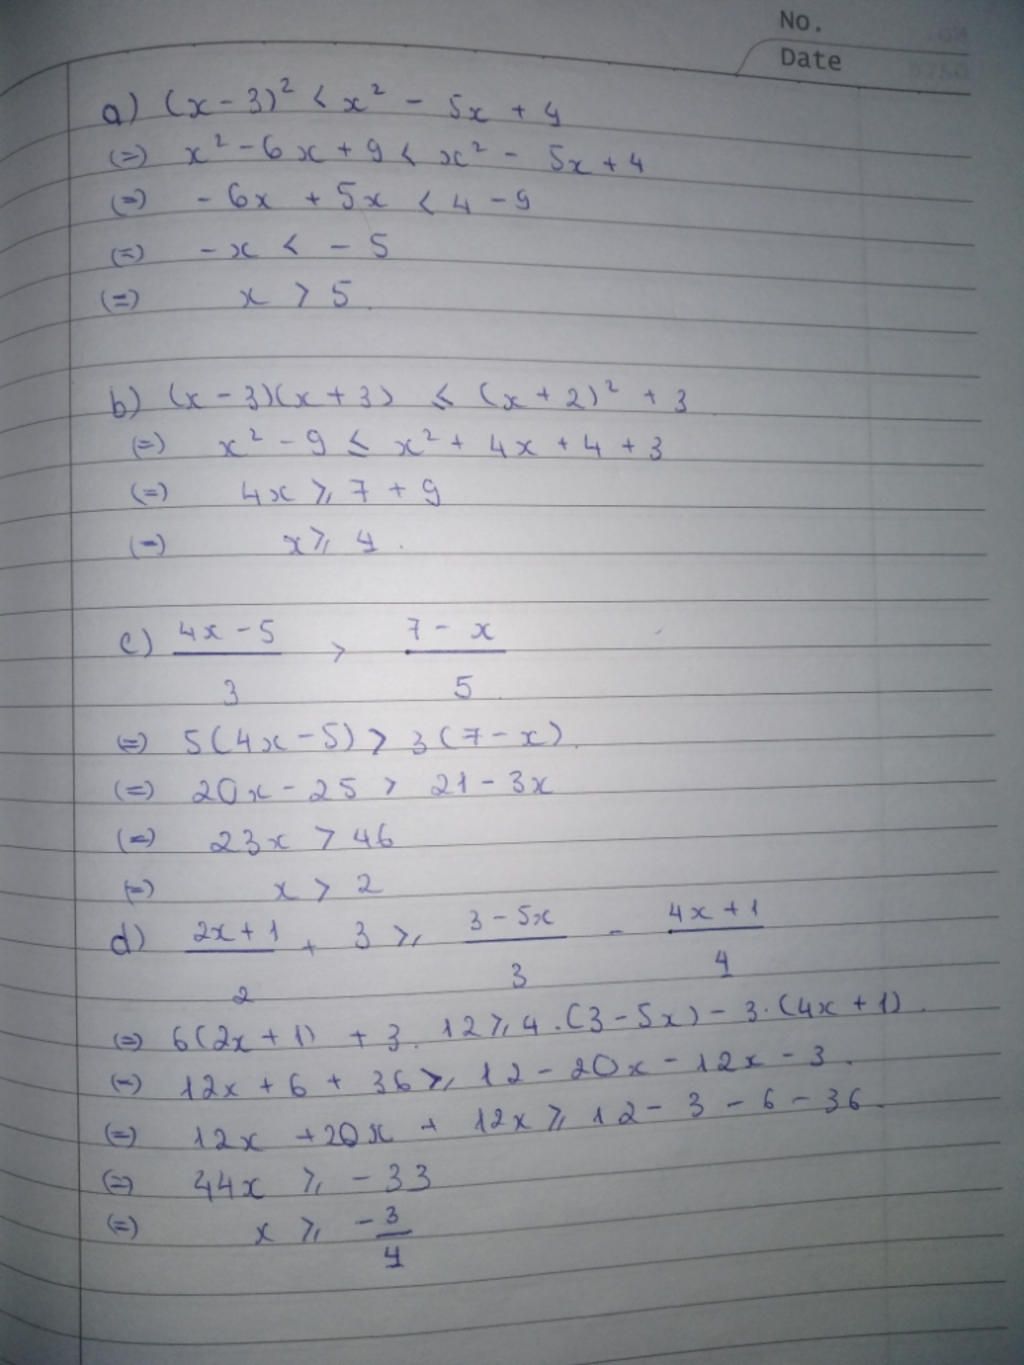 No.
Date
a) (x - 3)² < x² - 5x + 4
(=) x² - 6x + 9 < x² - 5x + 4
(=) - 6x + 5x < 4 - 9
(=) - x < - 5
(=) x > 5
b) (x - 3)(x + 3) ≤ (x + 2)² + 3
(=) x² - 9 ≤ x² + 4x + 4 + 3
(=) 4x ≥ 7 + 9
(=) x ≥ 4.
c) (4x - 5)/3 > (7 - x)/5
(=) 5(4x - 5) > 3(7 - x).
(=) 20x - 25 > 21 - 3x
(=) 23x > 46
(=) x > 2
d) (2x + 1)/2 + 3 ≥ (3 - 5x)/3 - (4x + 1)/4
(=) 6(2x + 1) + 3. 12 ≥ 4.(3 - 5x) - 3.(4x + 1).
(=) 12x + 6 + 36 ≥ 12 - 20x - 12x - 3.
(=) 12x + 20x + 12x ≥ 12 - 3 - 6 - 36.
(=) 44x ≥ - 33
(=) x ≥ -3/4